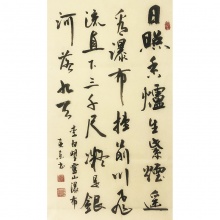 日照香爐生紫煙遙
看瀑布挂前川飛
流直下三千尺疑是銀
河落九天
李白望廬山瀑布